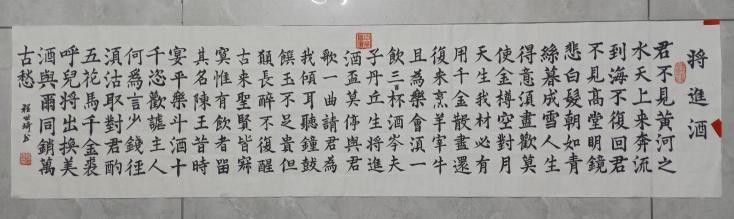 將進酒
君不見黃河之
水天上來奔流
到海不復回君
不見高堂明鏡
悲白髮朝如青
絲暮成雪人生
得意須盡歡莫
使金樽空對月
天生我材必有
用千金散盡還
復來烹羊宰牛
且為樂會湏一
飲三百杯酒岑夫
子丹丘生將進
酒盃莫停與君
歌一曲請君為
我傾耳聽鐘鼓
饌玉不足貴但
願長醉不復醒
古來聖賢皆寂
寞惟有飲者留
其名陳王昔時
宴平樂斗酒十
千恣歡謔主人
何為言少錢徑
湏沽取對君酌
五花馬千金裘
呼兒將出換美
酒與爾同銷萬
古愁